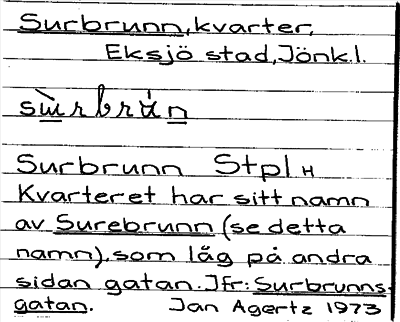 Surbrunn, kvarter,
Eksjö stad, Jönk.l.
sùrbrún
Surbrunn Stpl H
Kvarteret har sitt namn
av Surebrunn (se detta
namn), som låg på andra
sidan gatan. Jfr: Surbrunns-
gatan. Jan Agertz 1973